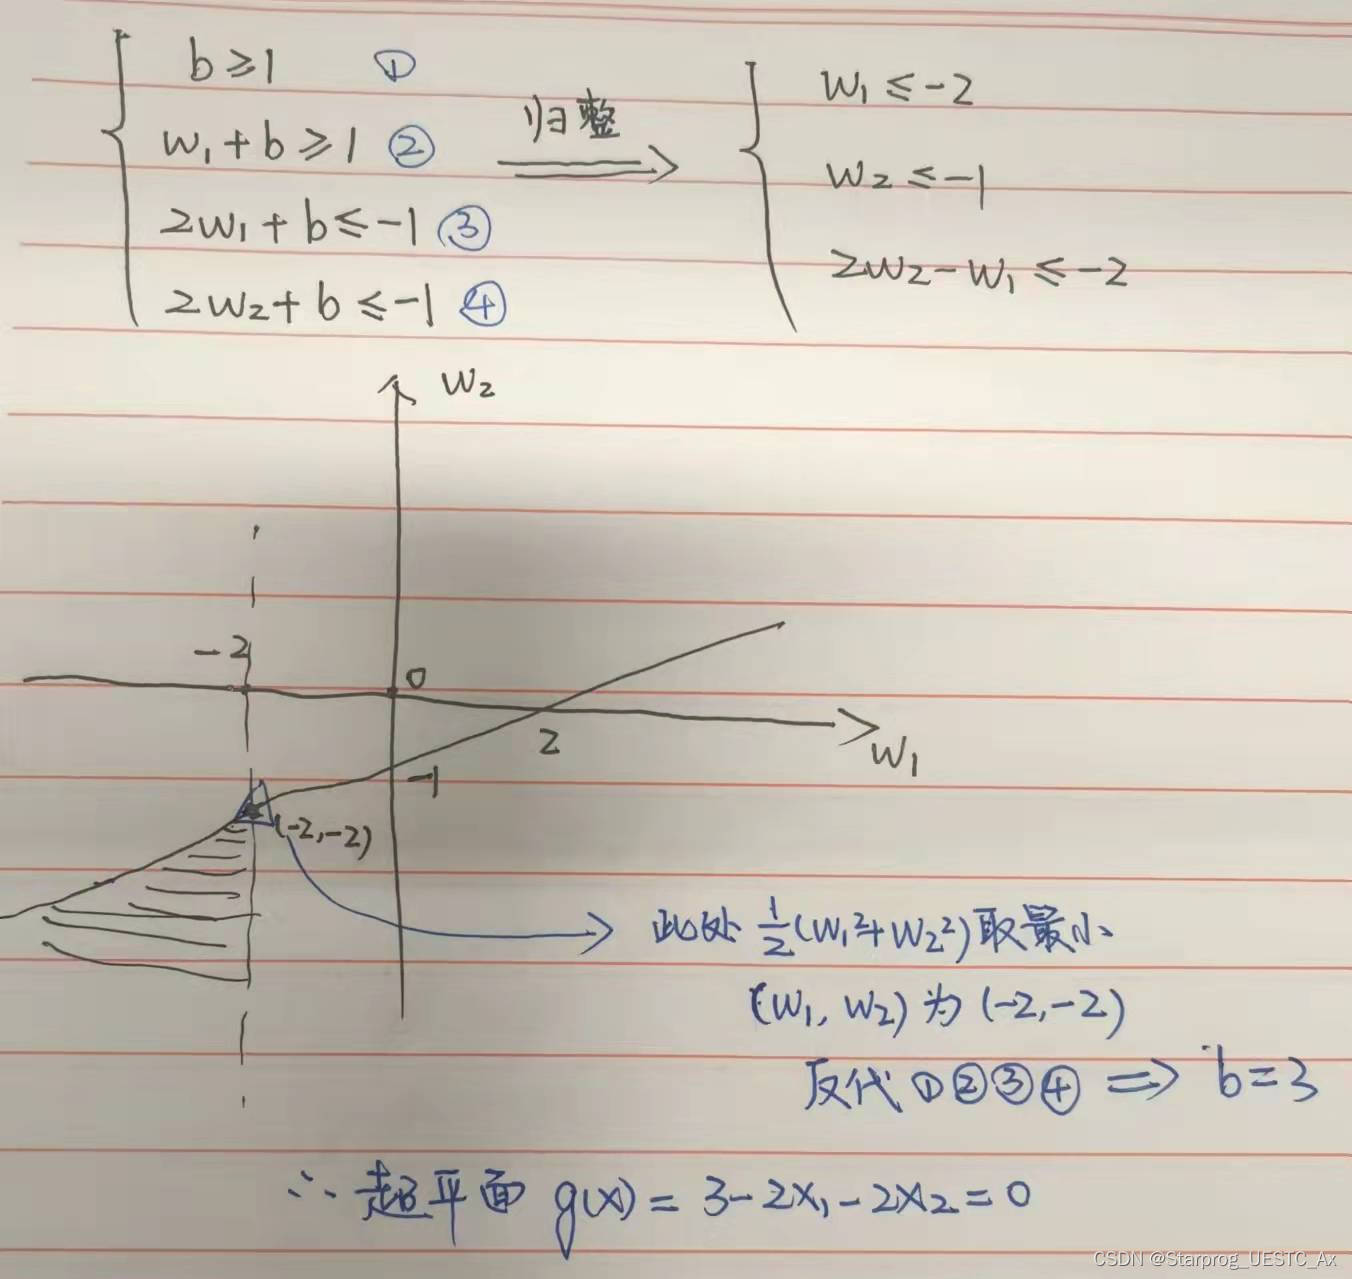 b ≥ 1 ①
w₁ + b ≥ 1 ②
2w₁ + b ≤ -1 ③
2w₂ + b ≤ -1 ④
归整
w₁ ≤ -2
w₂ ≤ -1
2w₂ - w₁ ≤ -2
w₂
-2
0
2
w₁
-1
(-2,-2)
此处 ½(w₁²+w₂²)取最小
(w₁, w₂) 为 (-2,-2)
反代 ①②③④ ⇒ b=3
∴ 超平面 g(x) = 3-2x₁-2x₂=0
CSDN @Starprog_UESTC_Ax